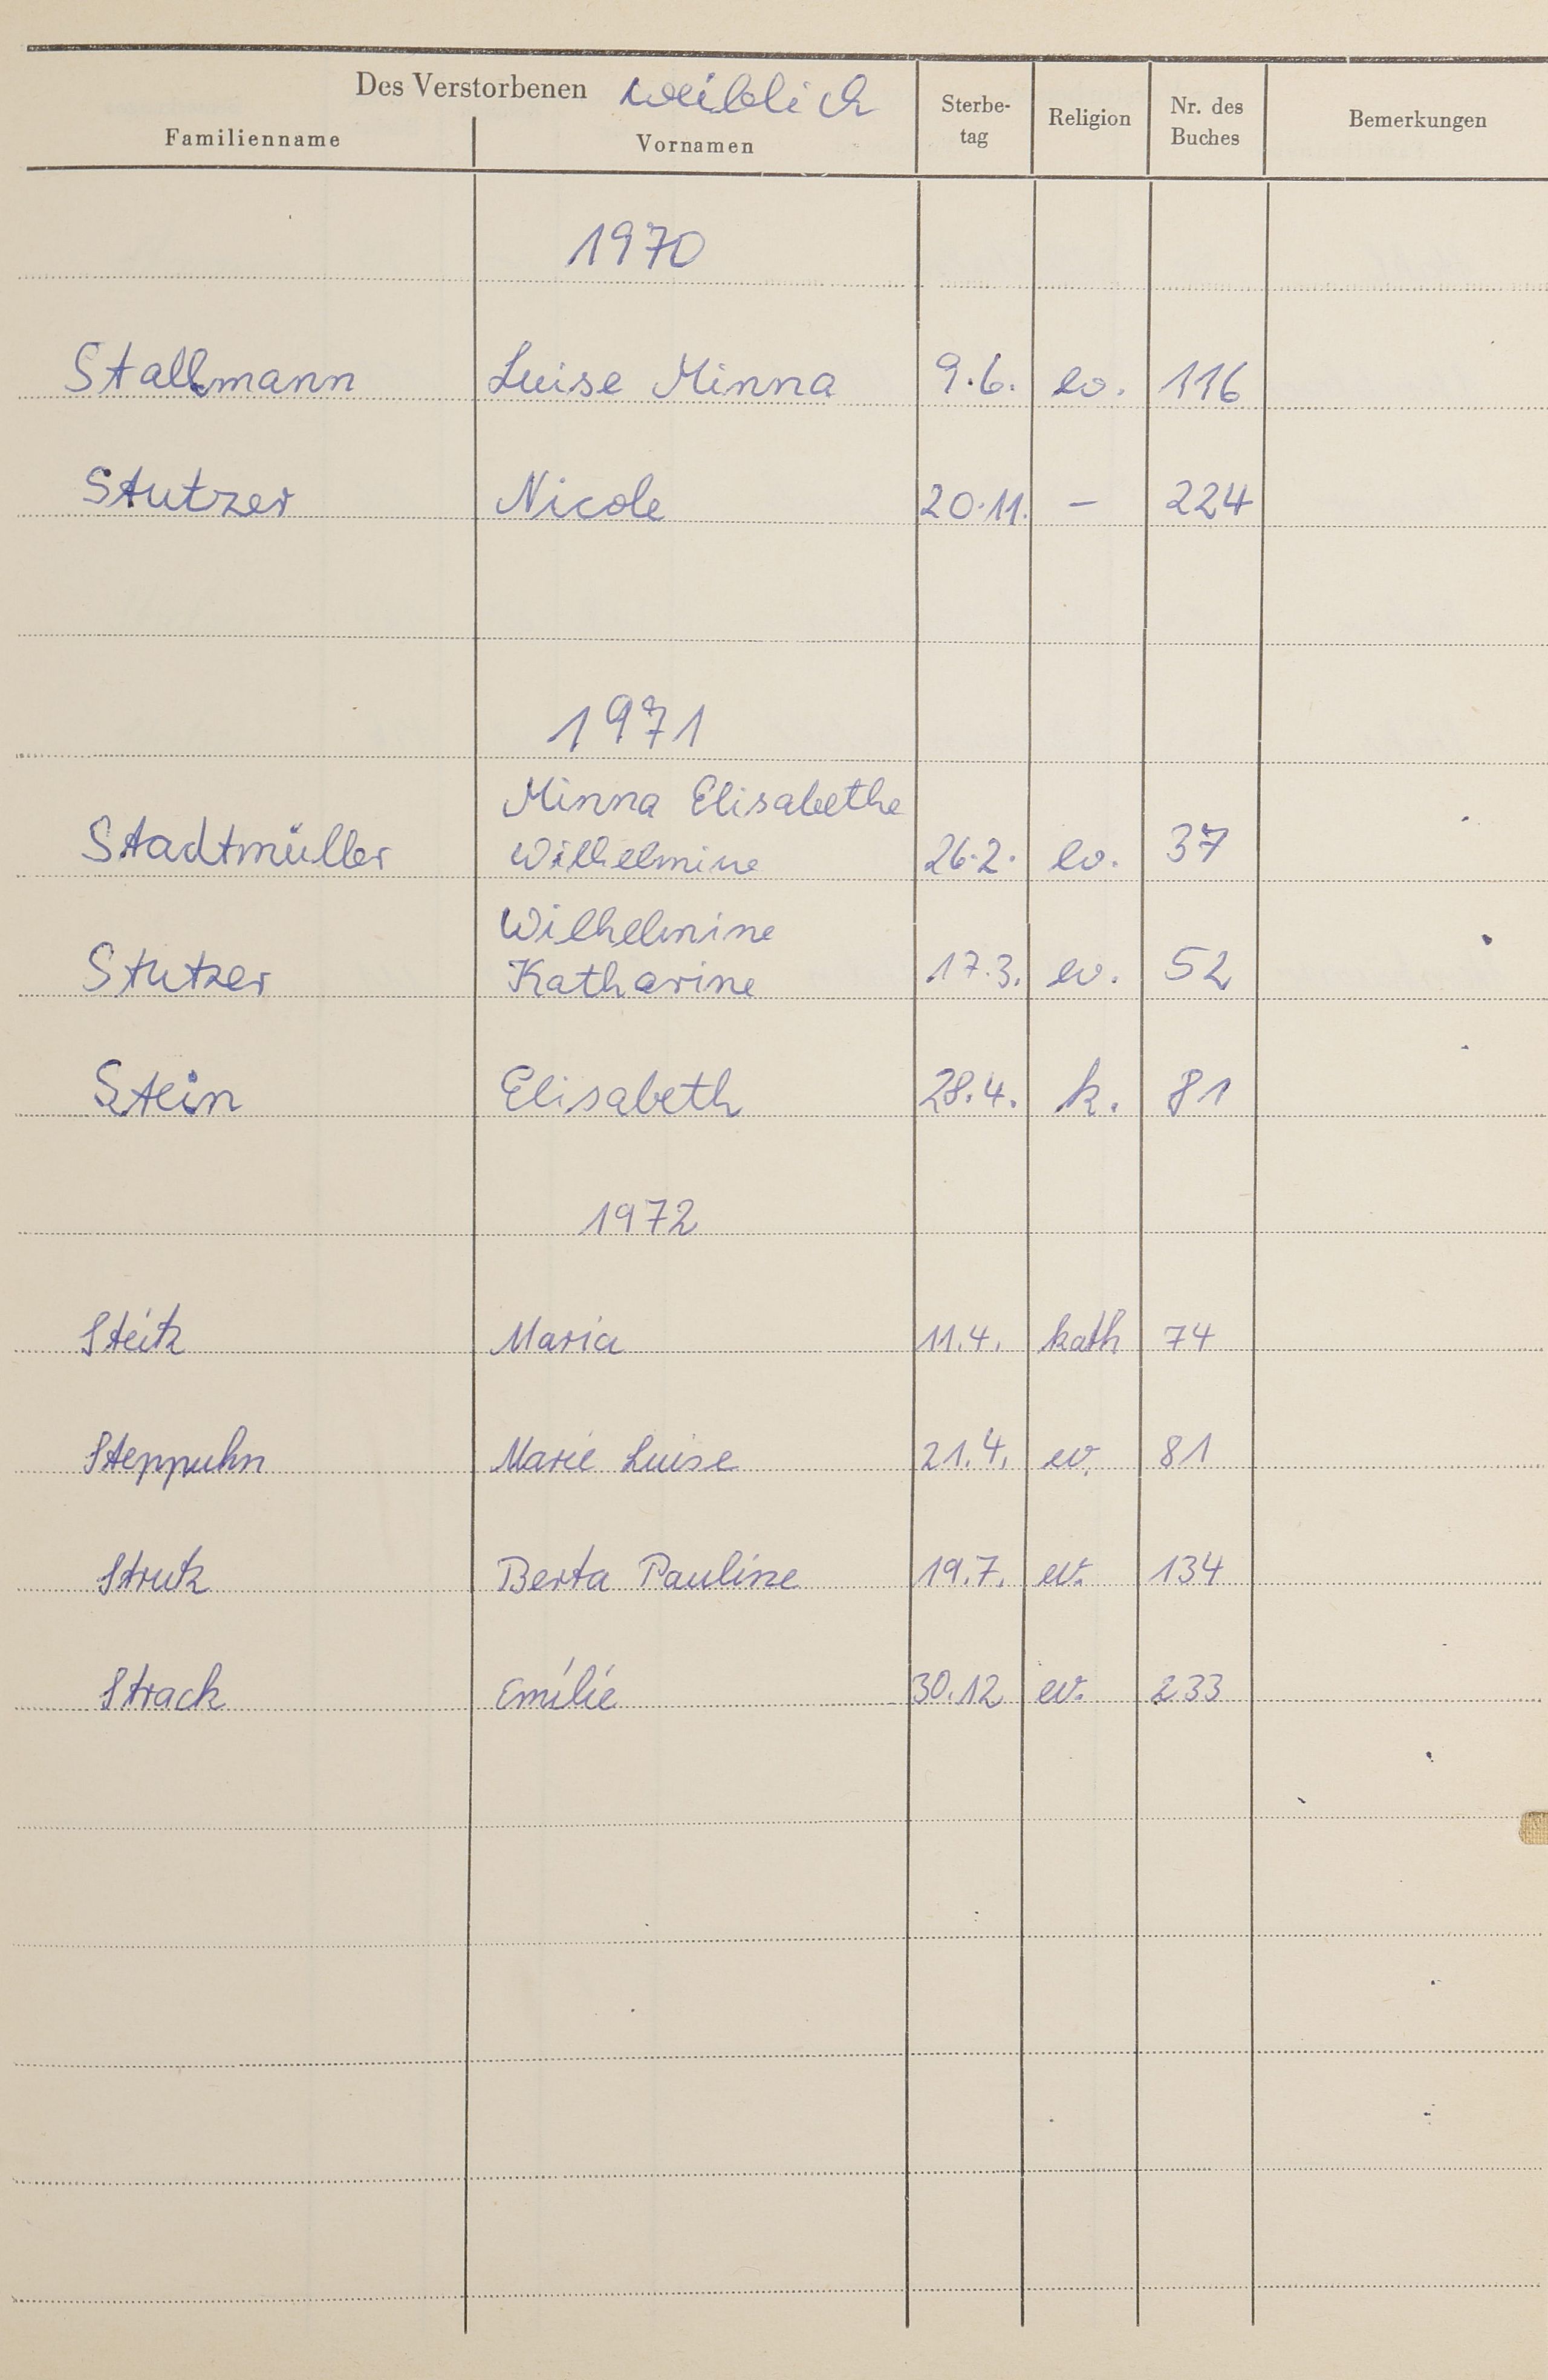 Des Verstorbenen weiblich
Familienname Vornamen Sterbe-tag Religion Nr. des Buches Bemerkungen
1970
Stallmann Luise Minna 9.6. ev. 116
Stutzer Nicole 20.11. – 224
1971
Minna Elisabethe
Stadtmüller Wilhelmine 26.2. ev. 37
Wilhelmine
Stutzer Katharine 17.3. ev. 52
Stein Elisabeth 28.4. k. 81
1972
Steitz Maria 11.4. kath 74
Steppuhn Marie Luise 21.4. ev. 81
Strutz Berta Pauline 19.7. ev. 134
Strack Emilie 30.12 ev. 233